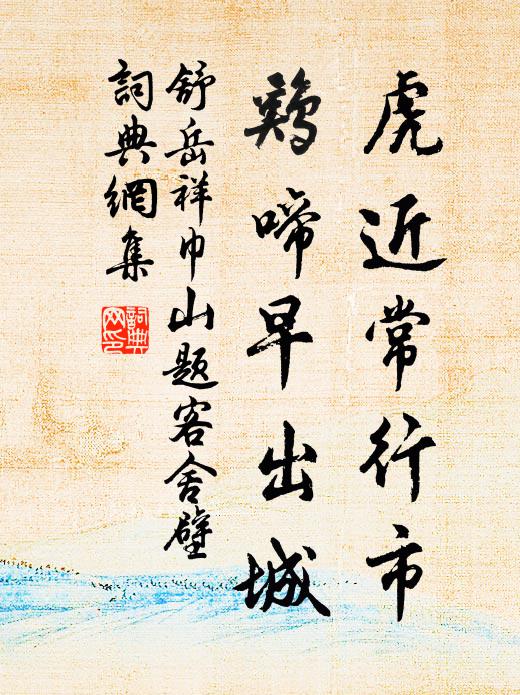 虎近常行市
鷄啼早出城
舒岳祥巾山題客舍壁
詞典網集
詞典
网印